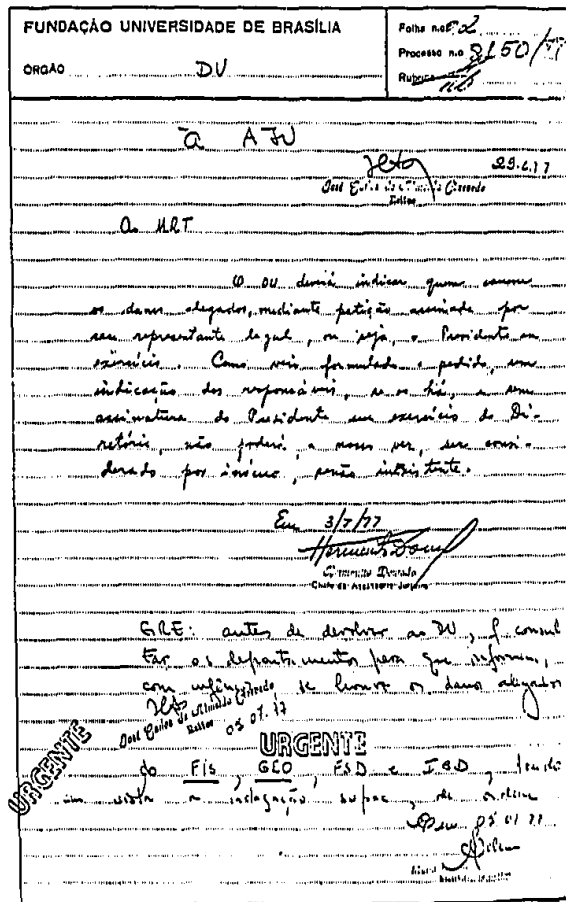 FUNDAÇÃO UNIVERSIDADE DE BRASÍLIA
Folha n.o 02
Processo n.o 8150/77
ORGÃO DU
Rubrica
À AJU
29.6.77
José Carlos de Almeida Azevedo
Reitor
Ao MRT
O DU deverá indicar quem causou
os danos alegados, mediante petição assinada por
seu representante legal, ou seja, o Presidente em
exercício. Como veio formulado o pedido, sem
indicação dos responsáveis, se os há, e sem
assinatura do Presidente em exercício do Di-
retório, não poderá, a nosso ver, ser consi-
derado por inócuo, senão inexistente.
Em 3/7/77
Chefe da Assessoria Jurídica
GRE: antes de devolver ao DU, p. consul
tar os departamentos para que informem,
com urgência, se houve os danos alegados
José Carlos de Almeida Azevedo
Reitor 05 07 77
URGENTE
URGENTE
Ao FIS, GEO, FSD e IBD, tendo
em vista a indagação supra, de ordem
Em 05 07 77